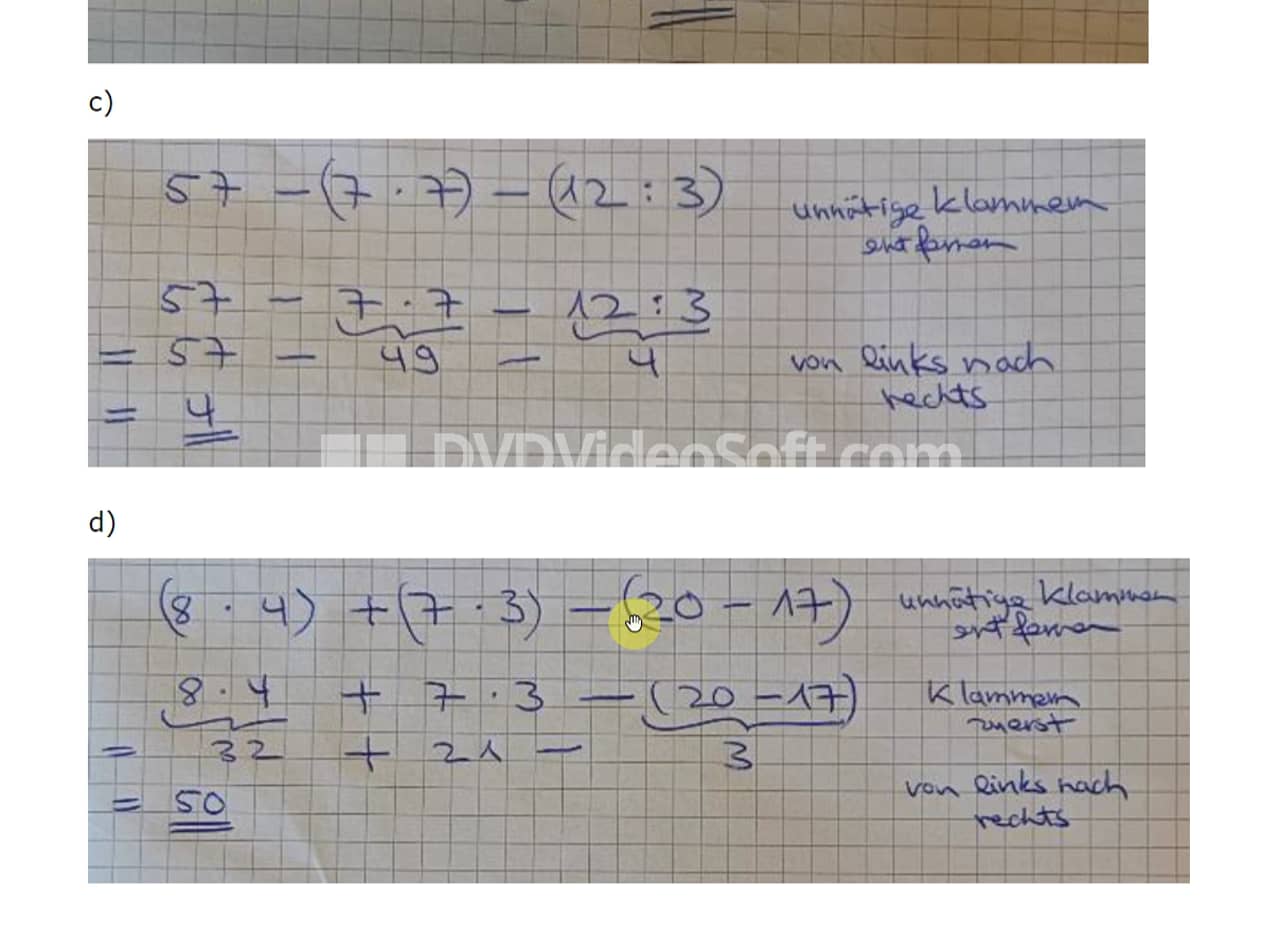 c)
57 - (7 · 7) - (12 : 3)
unnötige Klammern
entfernen
57 - 7 · 7 - 12 : 3
= 57 - 49 - 4
von links nach
rechts
= 4
DVDVideoSoft.com
d)
(8 · 4) + (7 · 3) - (20 - 17)
unnötige Klammern
entfernen
8 · 4 + 7 · 3 - (20 - 17)
Klammern
zuerst
= 32 + 21 - 3
von links nach
rechts
= 50